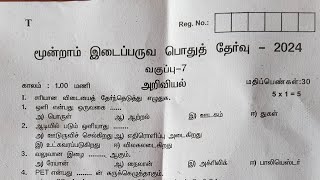 T
Reg. No.:
மூன்றாம் இடைப்பருவ பொதுத் தேர்வு - 2024
வகுப்பு-7
காலம் : 1.00 மணி அறிவியல் மதிப்பெண்கள்:30
I. சரியான விடையைத் தேர்ந்தெடுத்து எழுதுக. 5 x 1 = 5
1. ஒளி என்பது ஒருவகை .......
அ) பொருள் ஆ) ஆற்றல் இ) ஊடகம் ஈ) துகள்
2. ஆடியில் படும் ஒளியானது .......
அ) ஊடுருவிச் செல்கிறது ஆ) எதிரொளிப்பு அடைகிறது
இ) உட்கவரப்படுகிறது ஈ) விலகலடைகிறது
3. வலுவான இழை ........ ஆகும்.
அ) ரேயான் ஆ) நைலான் இ) அக்ரிலிக் ஈ) பாலியெஸ்டர்
4. PET என்பது ....... ன் சுருக்கெழுத்தாகும்.